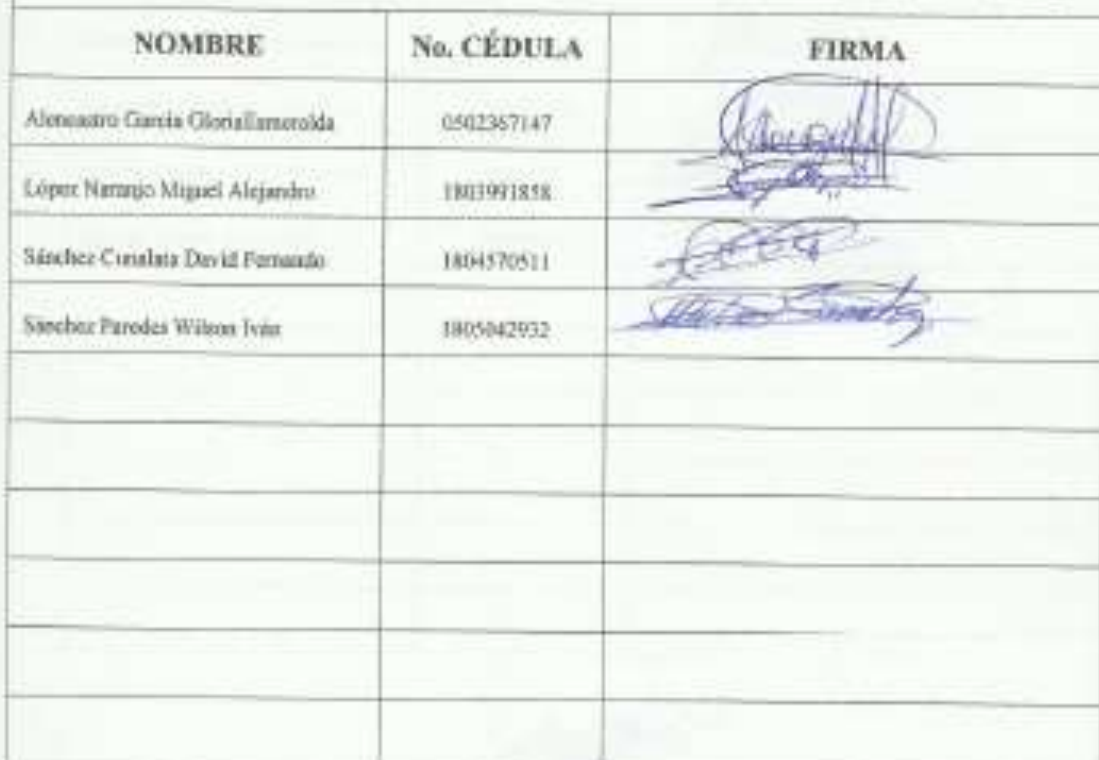 NOMBRE No. CÉDULA FIRMA
García 0502367147
López Naranjo Miguel Alejandro 1803991858
Sánchez David Fernando 1804570511
Sánchez Paredes Wilson Iván 1805042932